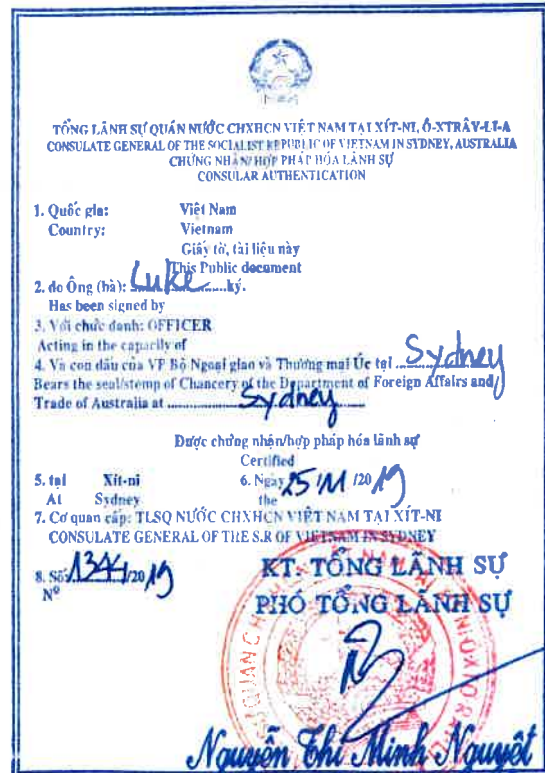 TỔNG LÃNH SỰ QUÁN NƯỚC CHXHCN VIỆT NAM TẠI XÍT-NI, Ô-XTRÂY-LI-A
CONSULATE GENERAL OF THE SOCIALIST REPUBLIC OF VIETNAM IN SYDNEY, AUSTRALIA
CHỨNG NHẬN/HỢP PHÁP HÓA LÃNH SỰ
CONSULAR AUTHENTICATION
1. Quốc gia: Việt Nam
Country: Vietnam
Giấy tờ, tài liệu này
This Public document
2. do Ông (bà): Luke ký.
Has been signed by
3. Với chức danh: OFFICER
Acting in the capacity of
4. Và con dấu của VP Bộ Ngoại giao và Thương mại Úc tại Sydney
Bears the seal/stemp of Chancery of the Department of Foreign Affairs and
Trade of Australia at Sydney
Được chứng nhận/hợp pháp hóa lãnh sự
Certified
5. tại Xít-ni 6. Ngày 25/11/2019
At Sydney the
7. Cơ quan cấp: TLSQ NƯỚC CHXHCN VIỆT NAM TẠI XÍT-NI
CONSULATE GENERAL OF THE S.R OF VIETNAM IN SYDNEY
8. Số: 1344/2019
Nº
KT. TỔNG LÃNH SỰ
PHÓ TỔNG LÃNH SỰ
Nguyễn Thị Minh Nguyệt